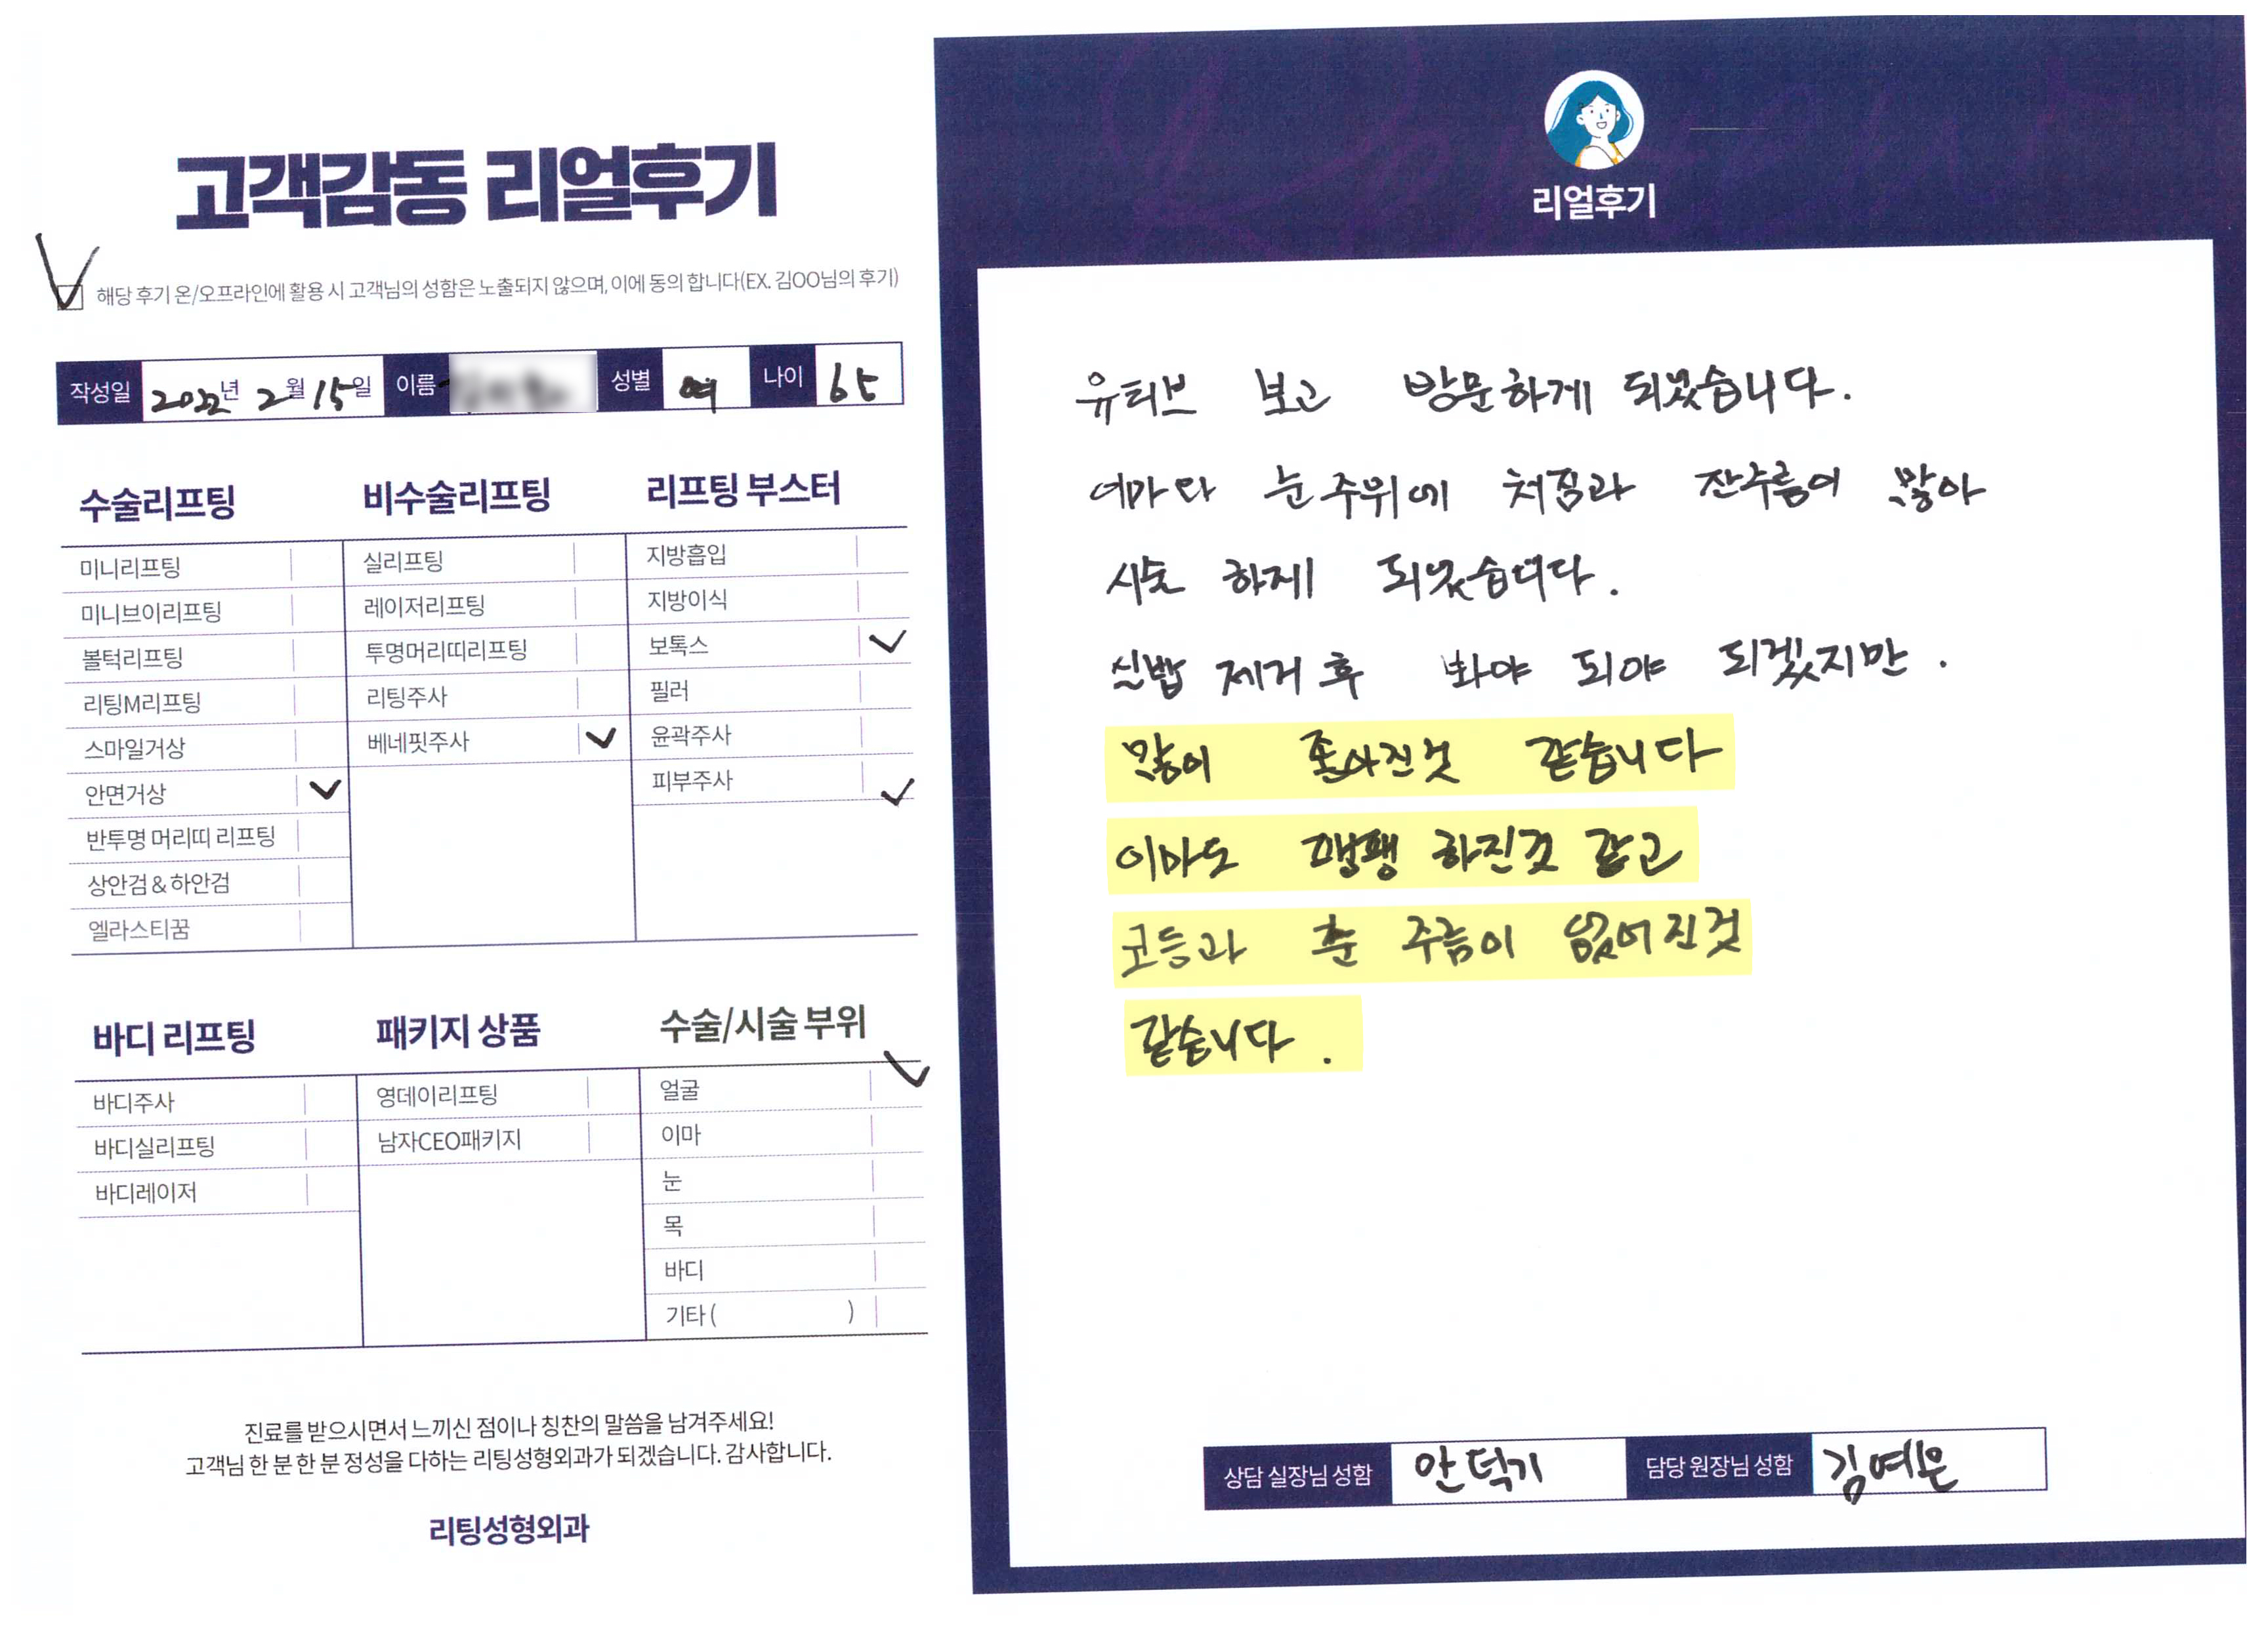 고객감동 리얼후기
해당 후기 온/오프라인에 활용 시 고객님의 성함은 노출되지 않으며, 이에 동의 합니다(EX. 김OO님의 후기)
작성일 2022년 2월 15일 이름 성별 여 나이 65
수술리프팅
미니리프팅
미니브이리프팅
볼턱리프팅
리팅M리프팅
스마일거상
안면거상
반투명 머리띠 리프팅
상안검 & 하안검
엘라스티꿈
비수술리프팅
실리프팅
레이저리프팅
투명머리띠리프팅
리팅주사
베네핏주사
리프팅 부스터
지방흡입
지방이식
보톡스
필러
윤곽주사
피부주사
바디 리프팅
바디주사
바디실리프팅
바디레이저
패키지 상품
영데이리프팅
남자CEO패키지
수술/시술 부위
얼굴
이마
눈
목
바디
기타 ( )
진료를 받으시면서 느끼신 점이나 칭찬의 말씀을 남겨주세요!
고객님 한 분 한 분 정성을 다하는 리팅성형외과가 되겠습니다. 감사합니다.
리팅성형외과
리얼후기
유티브 보고 방문하게 되었습니다.
이마와 눈주위에 처짐과 잔주름이 많아
시술 하게 되었습니다.
실밥 제거 후 봐야 되야 되겠지만.
많이 좋아진것 같습니다
이마도 팽팽 하진것 같고
코등과 춘 주름이 없어진것
같습니다.
상담 실장님 성함 안덕기 담당 원장님 성함 김예은